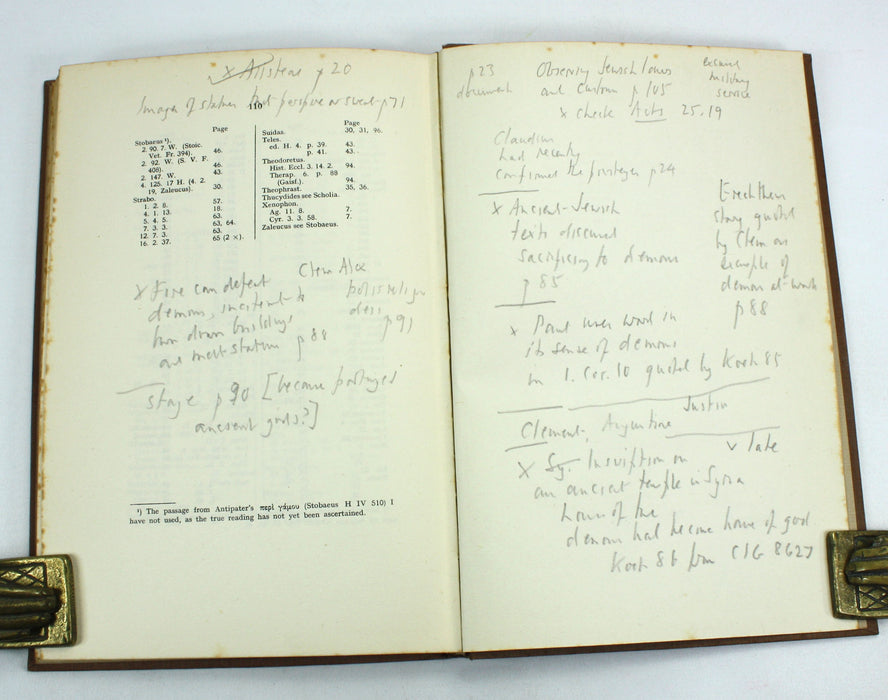 x Aristeas p 20
Images of statues that perspire or sweat p 71
110
Page
Stobaeus ¹).
2. 90. 7. W. (Stoic.
Vet. Fr. 394). 46.
2. 92. W. (S. V. F.
408). 46.
2. 147. W. 43.
4. 125. 17 H. (4. 2.
19, Zaleucus). 30.
Strabo.
1. 2. 8. 57.
4. 1. 13. 18.
5. 4. 5. 63, 64.
7. 3. 3. 63.
12. 7. 3. 63.
16. 2. 37. 65 (2 ×).
Page
Suidas. 30, 31, 96.
Teles.
ed. H. 4. p. 39. 43.
p. 41. 43.
Theodoretus.
Hist. Eccl. 3. 14. 2. 94.
Therap. 6. p. 88
(Gaisf.). 94.
Theophrast. 35, 36.
Thucydides see Scholia.
Xenophon.
Ag. 11. 8. 7.
Cyr. 3. 3. 58. 7.
Zaleucus see Stobaeus.
x Fire can defeat
demons, incitement to
burn down buildings
and melt statues p 88
Clem Alex
p 91
stage p 90 [become
ancient gods?]
¹) The passage from Antipater's περὶ γάμου (Stobaeus H IV 510) I
have not used, as the true reading has not yet been ascertained.
p23
document
Observing Jewish laws
and Custom p 105
military
service
x check Acts 25,19
Claudius
had recently
confirmed the p24
x Ancient-Jewish
texts discussed
sacrificing to demons
p 85
Erectheus
story quoted
by Clem as
example of
demon at work
p 88
x Paul uses word in
its sense of demons
in 1. Cor. 10 quoted by Koets 85
Justin
Clement, Augustine
v late
x Sy. Inscription on
an ancient temple in Syria
house of the
demons had become home of god
Koets 86 from CIG 8627